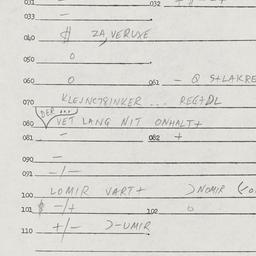 031 — 032
033 —
040 # ZA, VERUVE
050 0
060 0 061 — @ S+LAKRE
070 KLEJNC78INKER ... REG+DL
DER ...
080 VET LANG NIT ONHALT+
081 — 082 +
090 —
091 —/—
100 LOMIR VART+ )NOMIR
101 $ —/+ 102 0
110 +/— )-UMIR